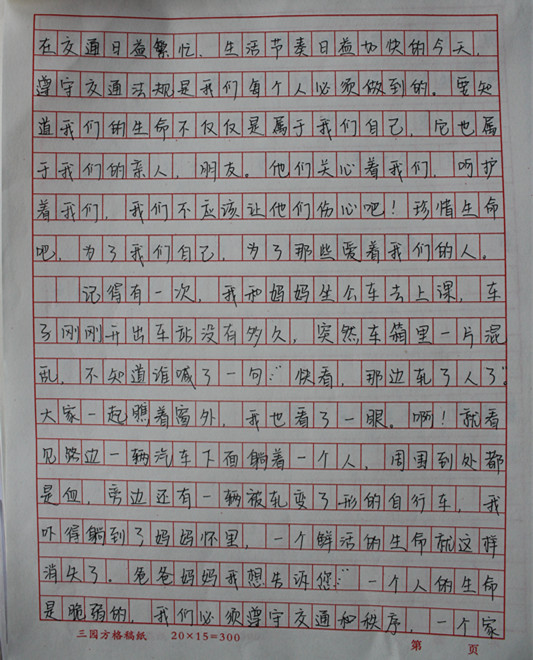 在交通日益繁忙、生活节奏日益加快的今天,
遵守交通法规是我们每个人必须做到的。要知
道我们的生命不仅仅是属于我们自己,它也属
于我们的亲人,朋友。他们关心着我们,呵护
着我们,我们不应该让他们伤心吧!珍惜生命
吧,为了我们自己,为了那些爱着我们的人。
记得有一次,我和妈妈坐公车去上课,车
子刚刚开出车站没有多久,突然车箱里一片混
乱,不知道谁喊了一句:“快看,那边轧了人了”
大家一起瞧着窗外,我也看了一眼。啊!就看
见路边一辆汽车下面躺着一个人,周围到处都
是血,旁边还有一辆被轧变了形的自行车,我
吓得躺到了妈妈怀里,一个鲜活的生命就这样
消失了。爸爸妈妈我想告诉您:“一个人的生命
是脆弱的,我们必须遵守交通和秩序,一个家
三园方格稿纸 20×15=300 第 页